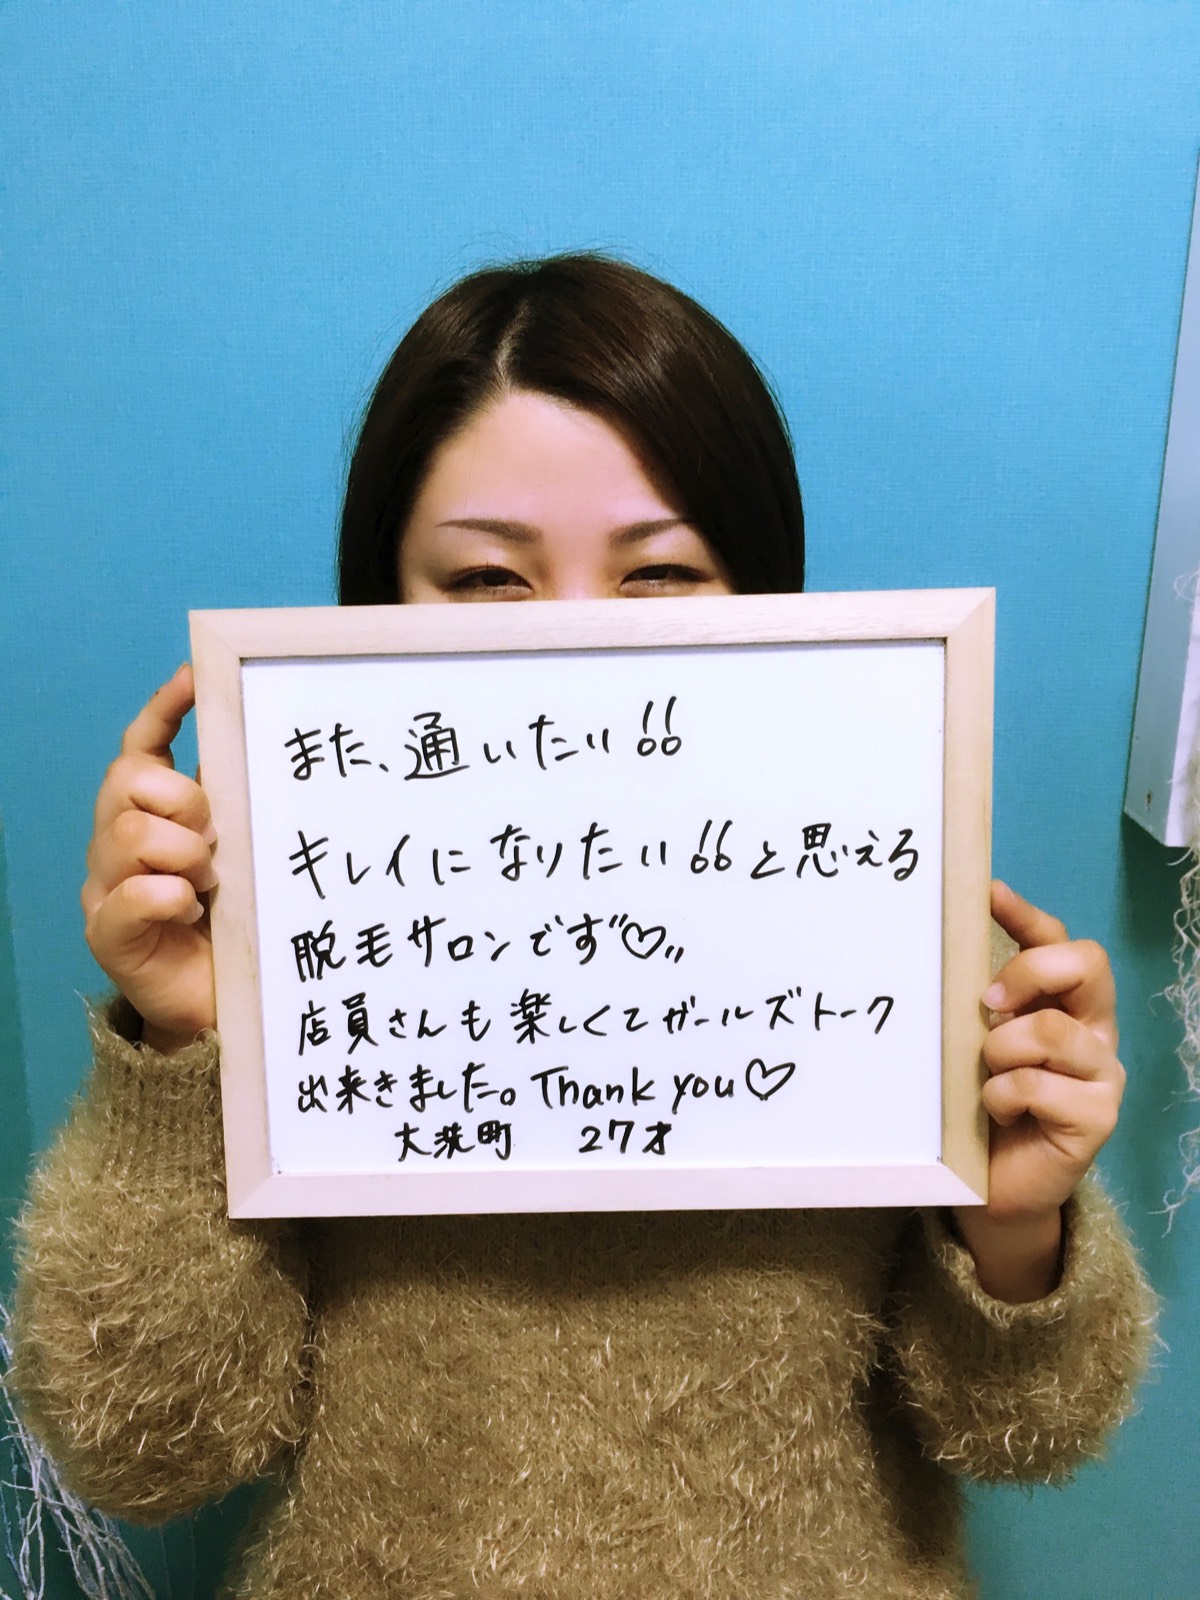 また、通いたい!!
キレイになりたい!!と思える
脱毛サロンです♡
店員さんも楽しくてガールズトーク
出来きました。Thank you♡
大洗町 27才